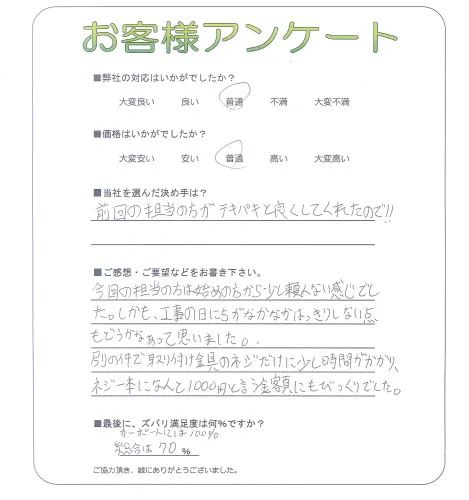 お客様アンケート
■弊社の対応はいかがでしたか？
大変良い 良い 普通 不満 大変不満
■価格はいかがでしたか？
大変安い 安い 普通 高い 大変高い
■当社を選んだ決め手は？
前回の担当の方がテキパキと良くしてくれたので!!
■ご感想・ご要望などをお書き下さい。
今回の担当の方は始めの方から少し頼んない感じでし
た。しかも、工事の日にちがなかなかはっきりしない点
もどうかなぁって思いました。
別の件で取り付け金具のネジだけに少し時間がかかり、
ネジ一本になんと1000円と言う金額にもびっくりでした。
■最後に、ズバリ満足度は何％ですか？
カーポートには100%
総合は 70 ％
ご協力頂き、誠にありがとうございました。